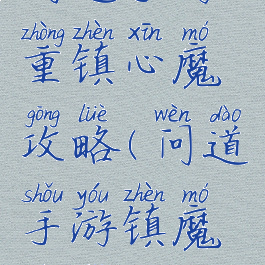 zhòng zhèn xīn mó
重镇心魔
gōng lüè wèn dào
攻略(问道
shǒu yóu zhèn mó
手游镇魔